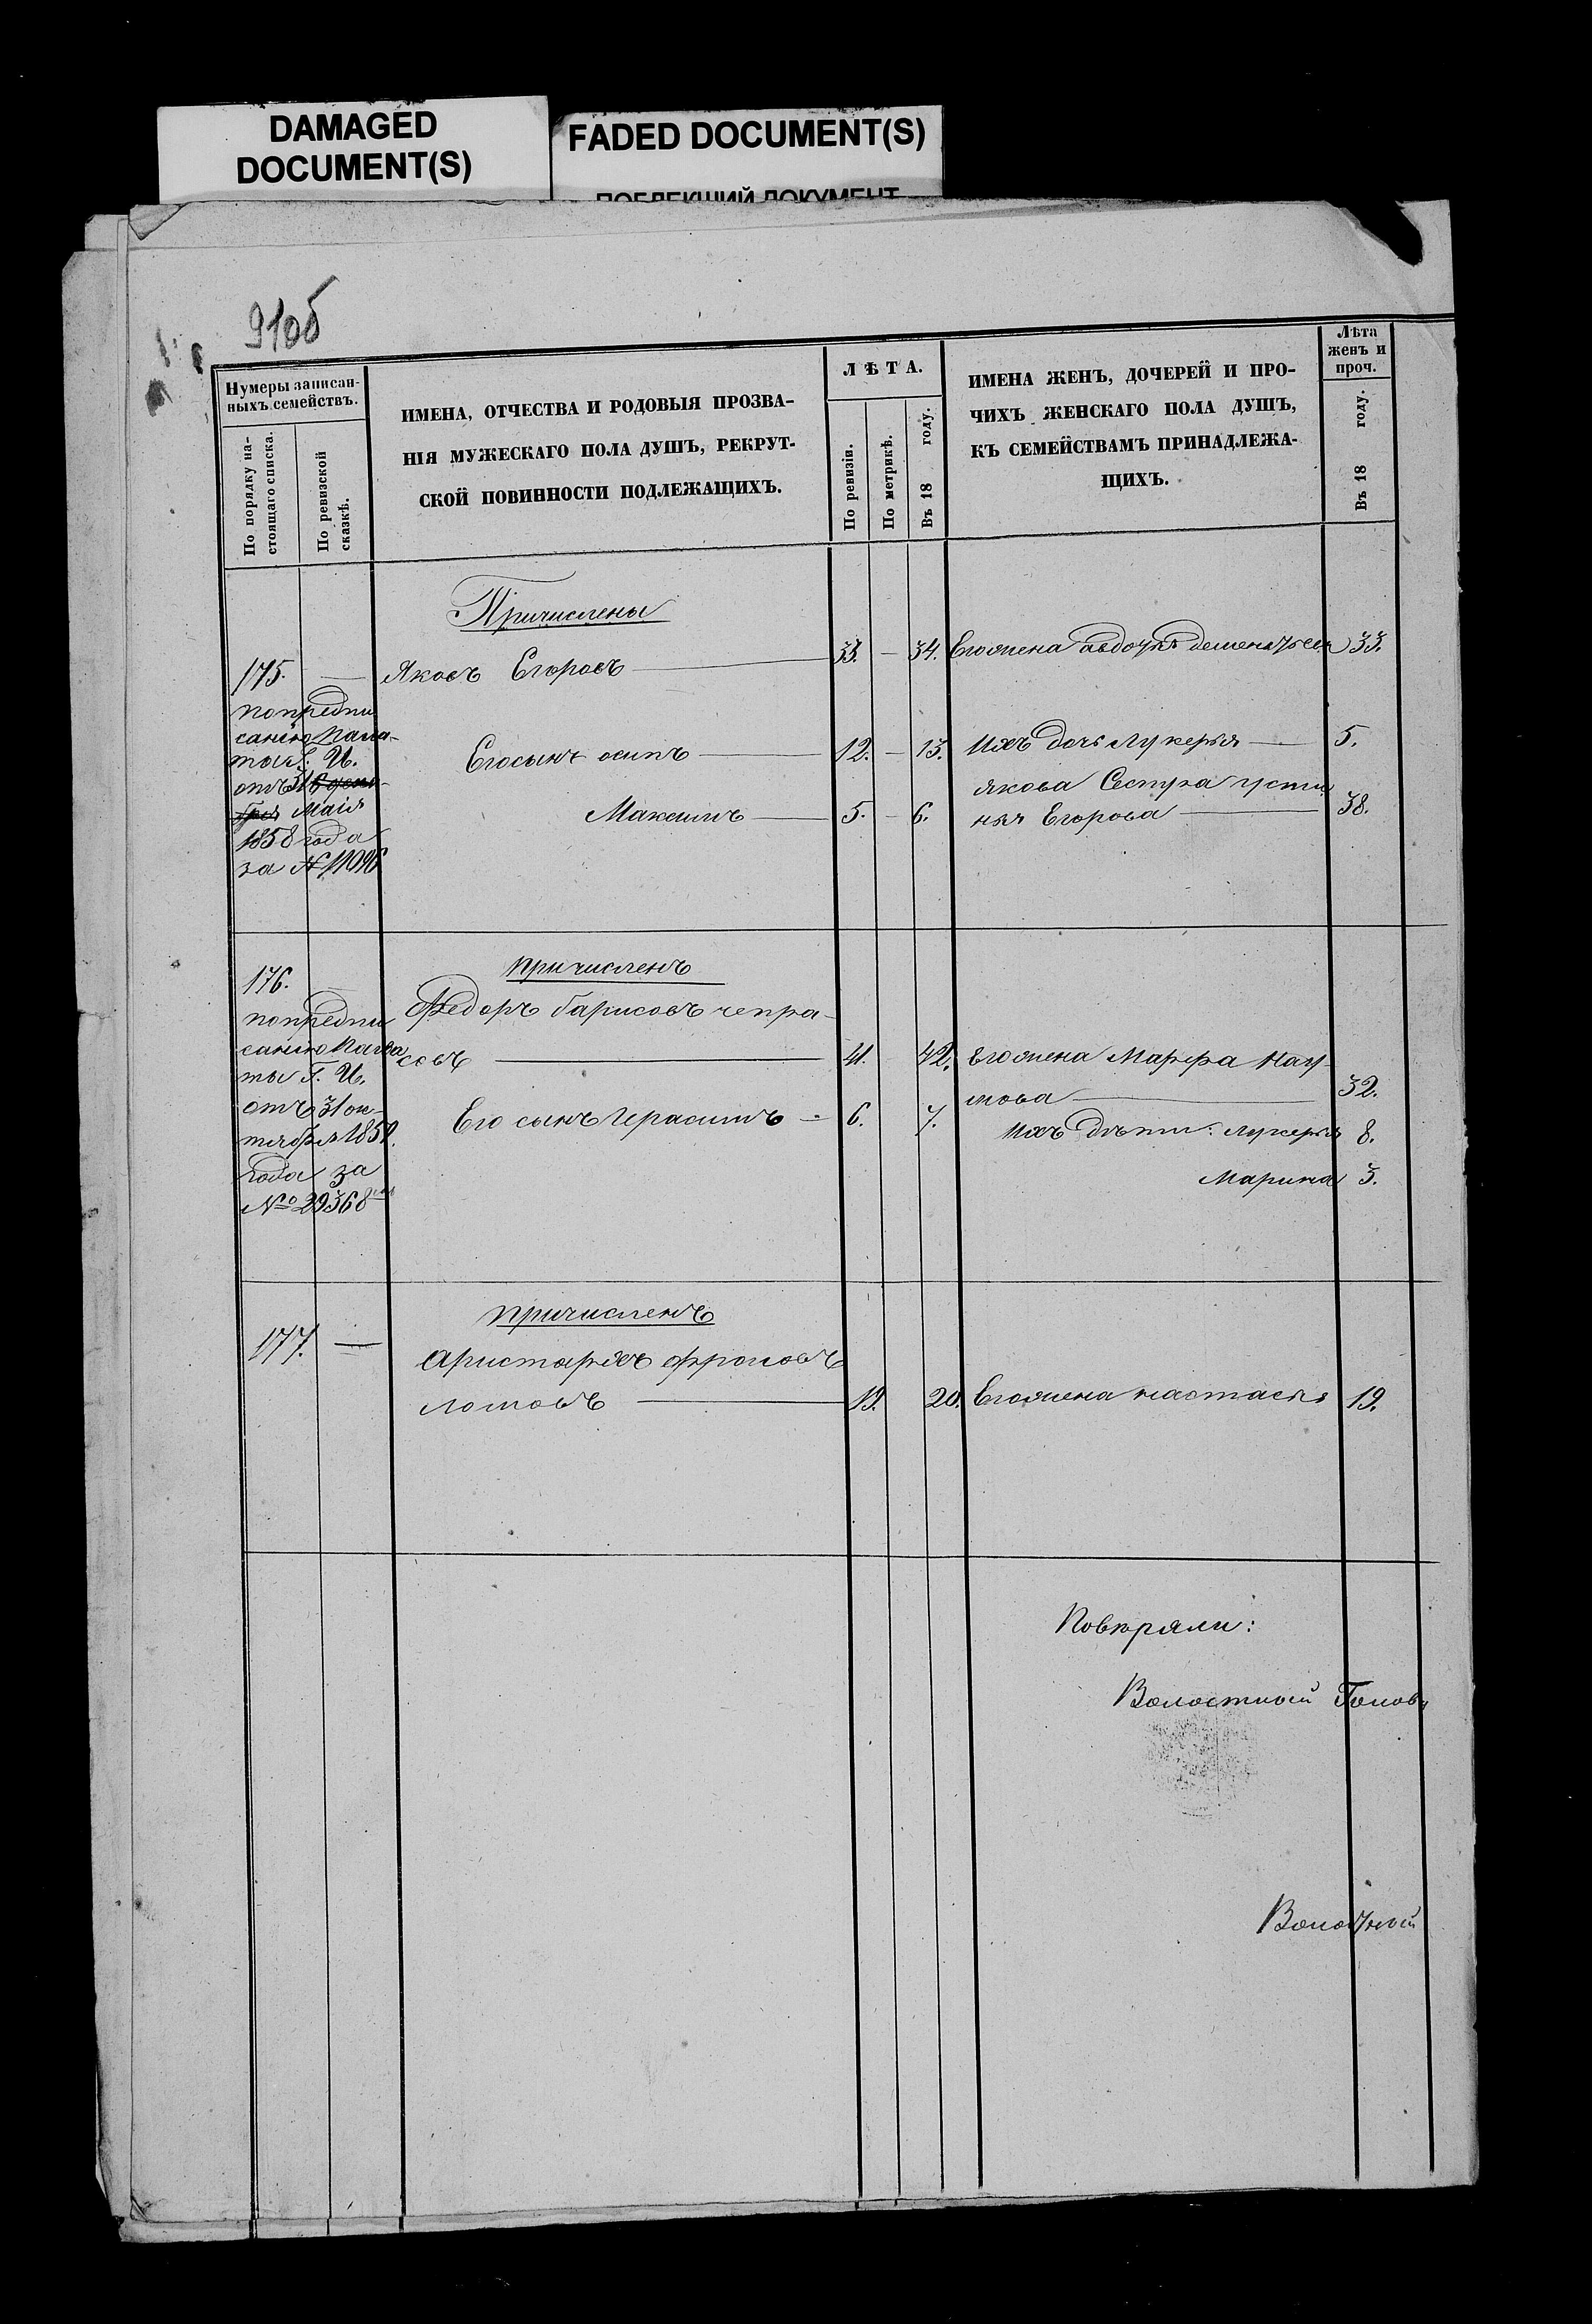 DAMAGED
DOCUMENT(S)
FADED DOCUMENT(S)
ПОБЛЕКШИЙ ДОКУМЕНТ
910б
Нумеры записан-
ныхъ семействъ.
По порядку на-
стоящаго списка.
По ревизской
сказкѣ.
ИМЕНА, ОТЧЕСТВА И РОДОВЫЯ ПРОЗВА-
НІЯ МУЖЕСКАГО ПОЛА ДУШЪ, РЕКРУТ-
СКОЙ ПОВИННОСТИ ПОДЛЕЖАЩИХЪ.
ЛѢТА.
По ревизіи.
По метрикѣ.
Въ 18 году.
ИМЕНА ЖЕНЪ, ДОЧЕРЕЙ И ПРО-
ЧИХЪ ЖЕНСКАГО ПОЛА ДУШЪ,
КЪ СЕМЕЙСТВАМЪ ПРИНАДЛЕЖА-
ЩИХЪ.
Лѣта
женъ и
проч.
Въ 18 году.
Причислены
175. — Яковъ Егоровъ — 33. — 34. Егожена авдотья 33.
попредпи
санію Пала-
ты Г. И.
отъ 31
Маія
1858 года
за № 11096
Егосынъ осипъ — 12. — 13. Ихъ дочь Лукерья — 5.
Максимъ — 5. — 6.
якова Сестра усти
нья Егорова — 38.
причисленъ
176.
попредпи
санію Пала
ты Г. И.
отъ 31 ок-
тября 1859.
года за
№ 29368
Федоръ барисовъ чепра-
совъ — 41. 42. Егожена Марфа Нау-
мова — 32.
Его сынъ Герасимъ — 6. 7. Ихъ дѣти: Лукерья 8.
Марина 3.
причисленъ
177. —
Аристархъ фроловъ
ломовъ — 19. 20. Егожена настасья 19.
Повѣряли:
Волостной Голова
Волостной